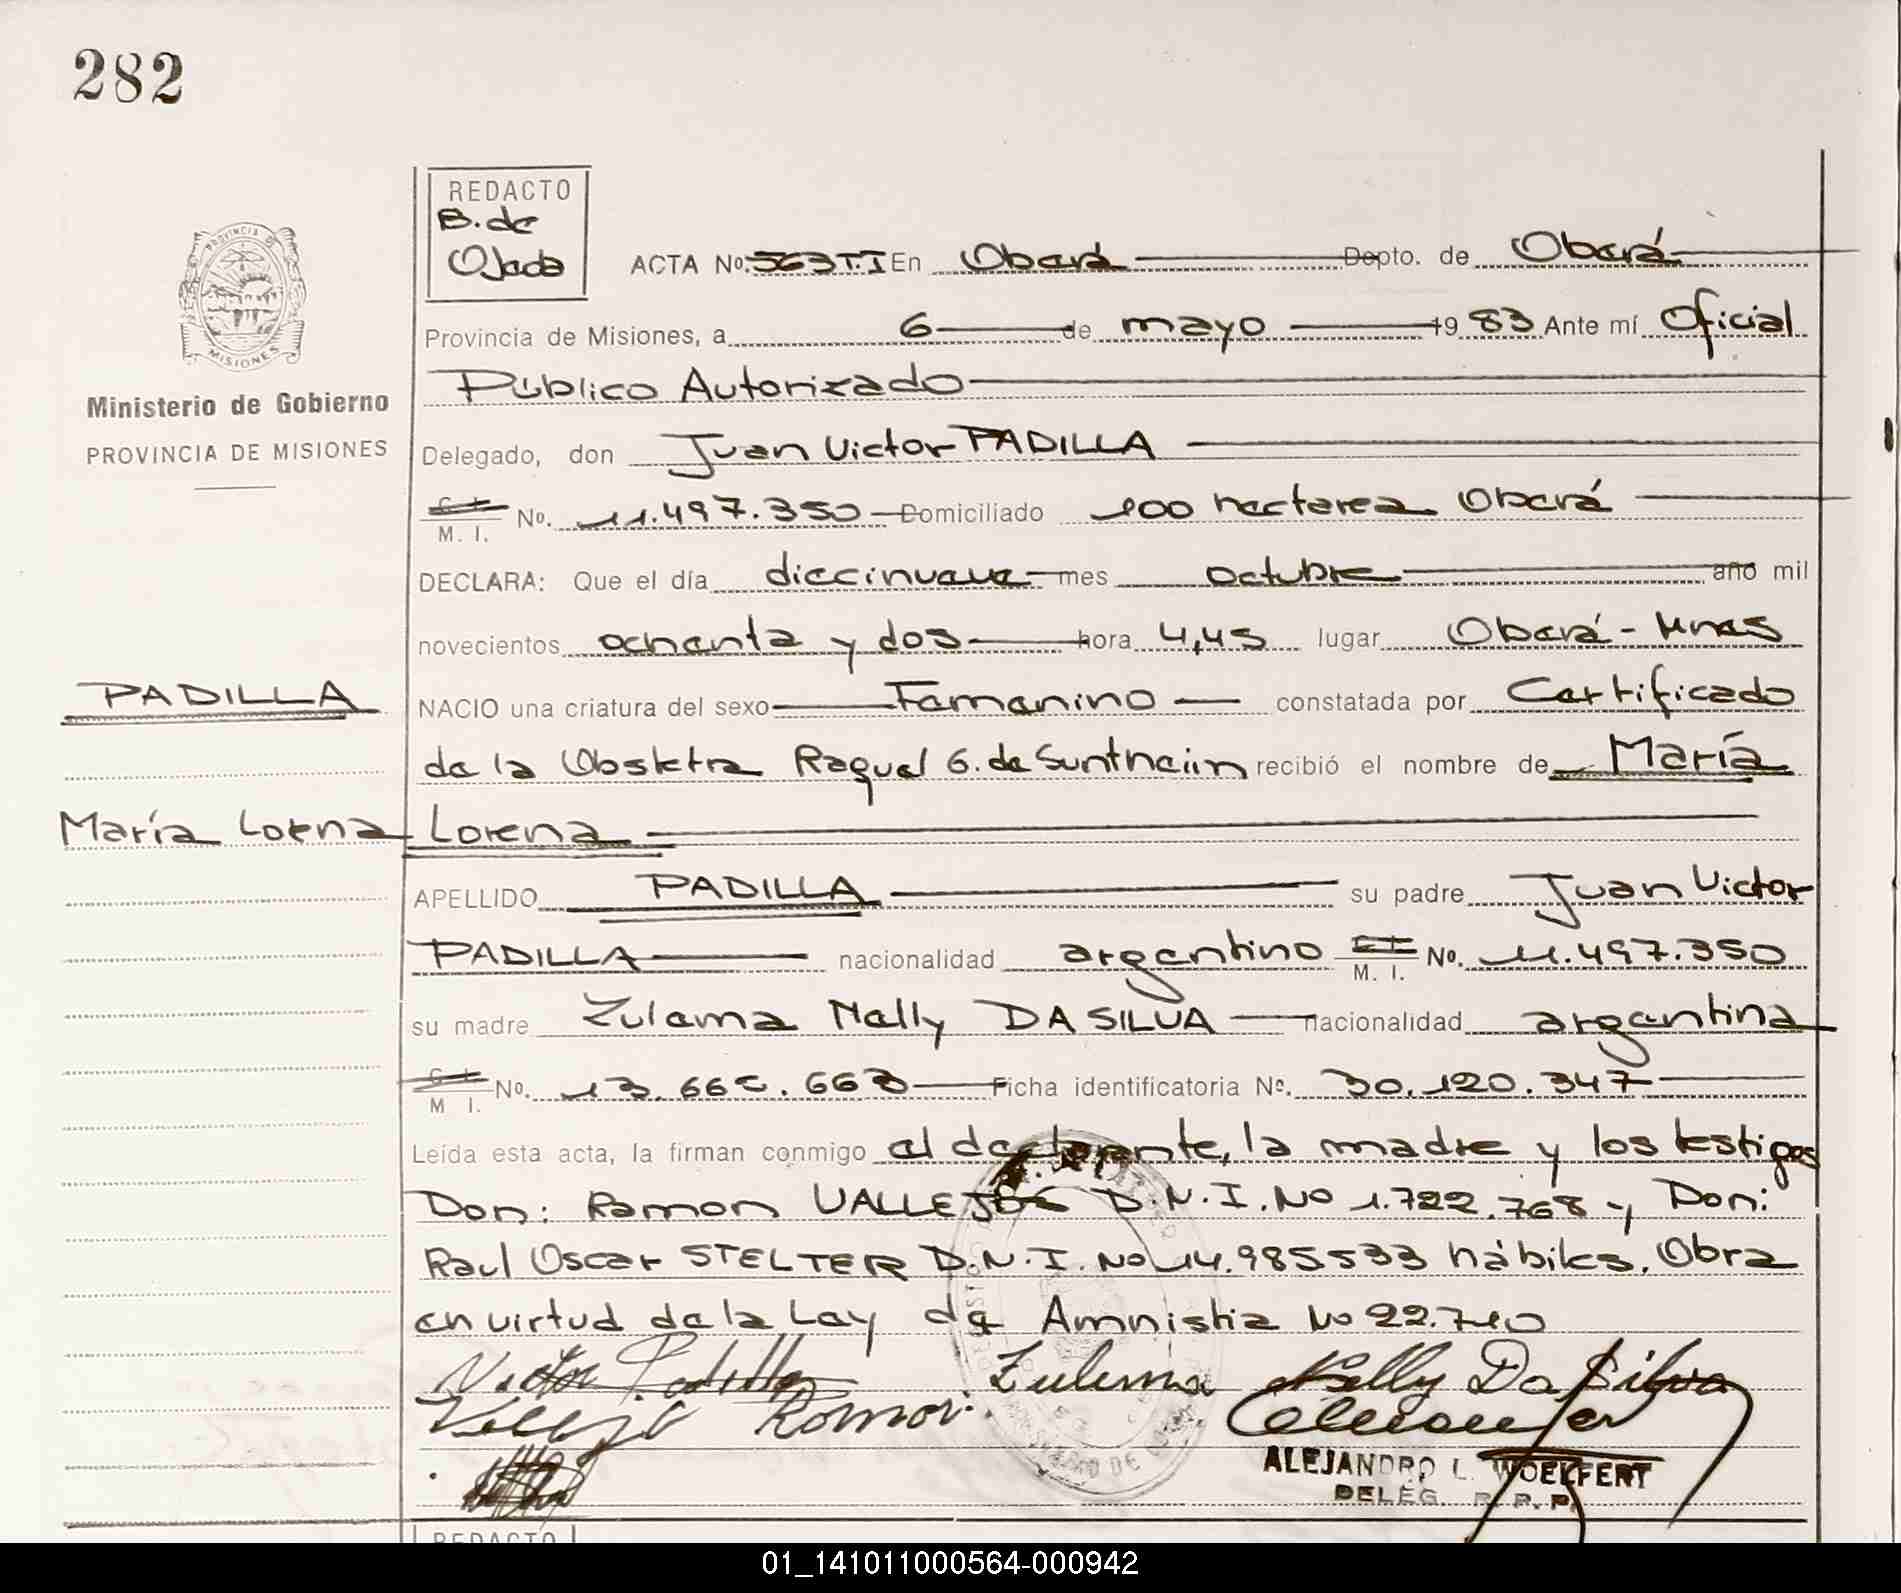 282
REDACTO
B. de
Ojeda
ACTA No. 563 T.I En Oberá Depto. de Oberá
Provincia de Misiones, a 6 de mayo 1983 Ante mí Oficial
Público Autorizado
PROVINCIA DE
MISIONES
Ministerio de Gobierno
PROVINCIA DE MISIONES
Delegado, don Juan Victor PADILLA
M. I. No. 11.497.350 Domiciliado 100 hectarea Oberá
DECLARA: Que el día diecinueve mes octubre año mil
novecientos ochenta y dos hora 4,45 lugar Oberá - Mnes
PADILLA
NACIO una criatura del sexo Femenino constatada por Certificado
de la Obstetra Raquel G. de recibió el nombre de María
María Lorena
Lorena
APELLIDO PADILLA su padre Juan Victor
PADILLA nacionalidad argentino M. I. No. 11.497.350
su madre Zulema Nelly DA SILVA nacionalidad argentina
M I. No. Ficha identificatoria Nº. 30.120.347
Leída esta acta, la firman conmigo el declarante, la madre y los testigos
Don: Ramon VALLEJOS D.N.I. No 1.722.768 y Don:
Raul Oscar STELTER D.N.I. No 14.985533 hábiles. Obra
en virtud de la Ley de Amnistia No 22.710
Victor Padilla Zulema Nelly Da Silva
Vallejo Ramon
ALEJANDRO L. WOELFERT
DELEG. R. P. P.
REDACTO
01_141011000564-000942